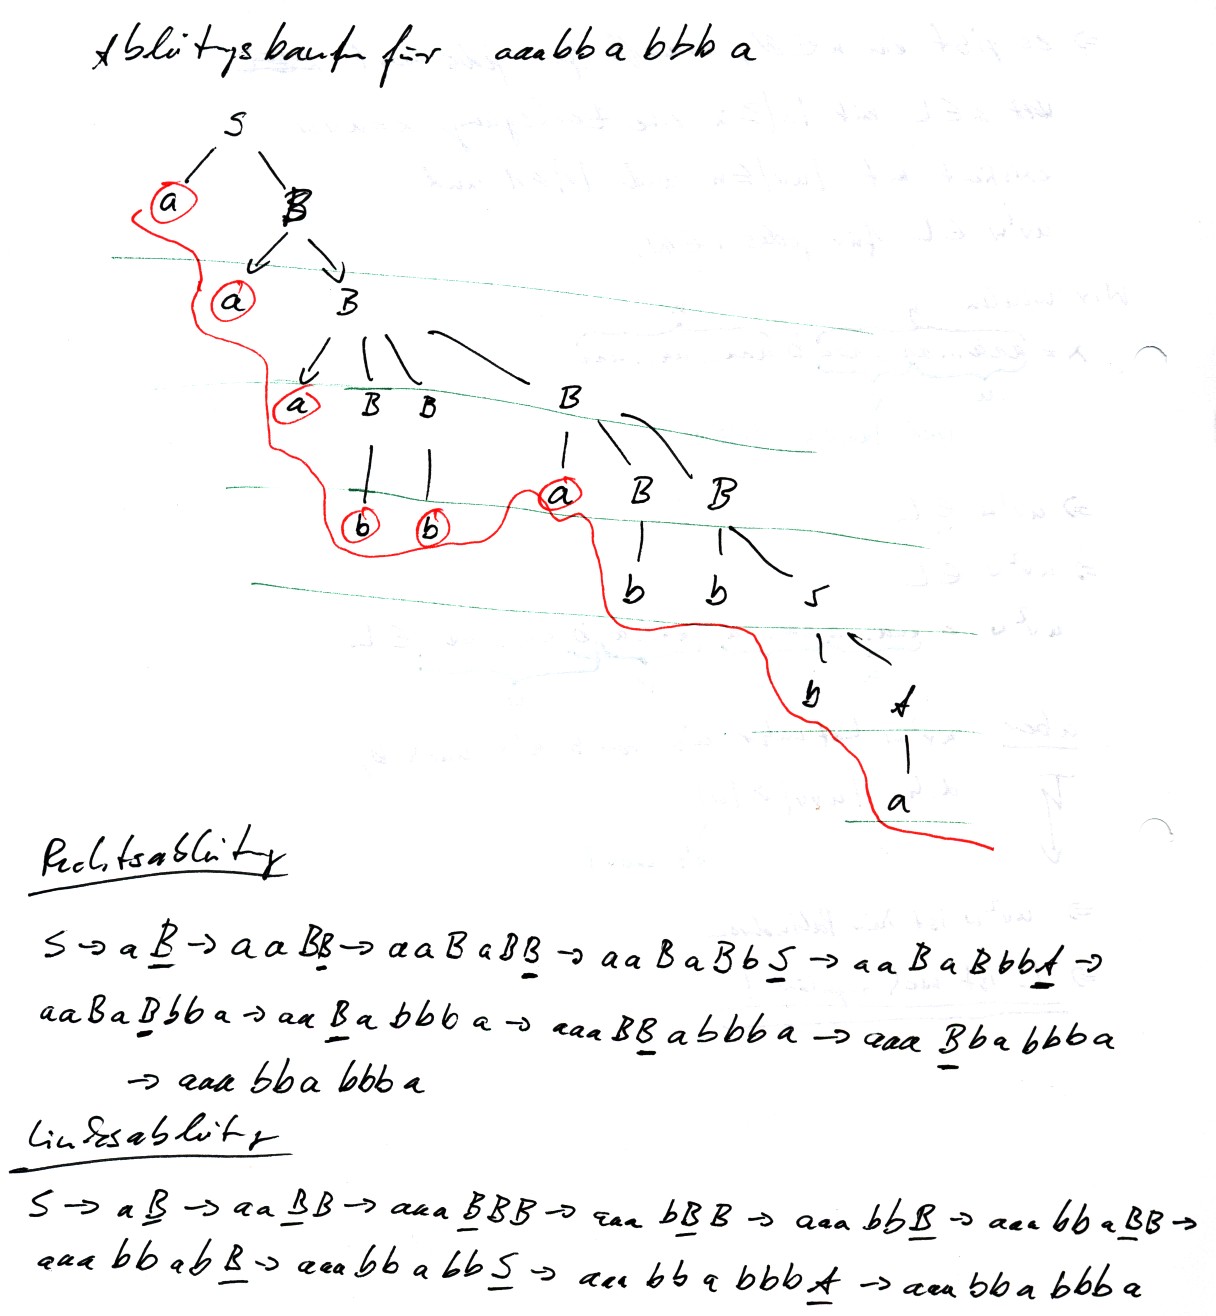 Ableitungsbaum für aaabbabbba
S
a B
a B
a B B B
b b a B B
b b S
b A
a
Rechtsableitung
S → aB → aaBB → aaBaBB → aaBaBbS → aaBaBbbA →
aaBaBbba → aaBabbba → aaaBBabbba → aaaBbabbba
→ aaabbabbba
Linksableitung
S → aB → aaBB → aaaBBB → aaabBB → aaabbB → aaabbaBB →
aaabbabB → aaabbabbS → aaabbabbbA → aaabbabbba